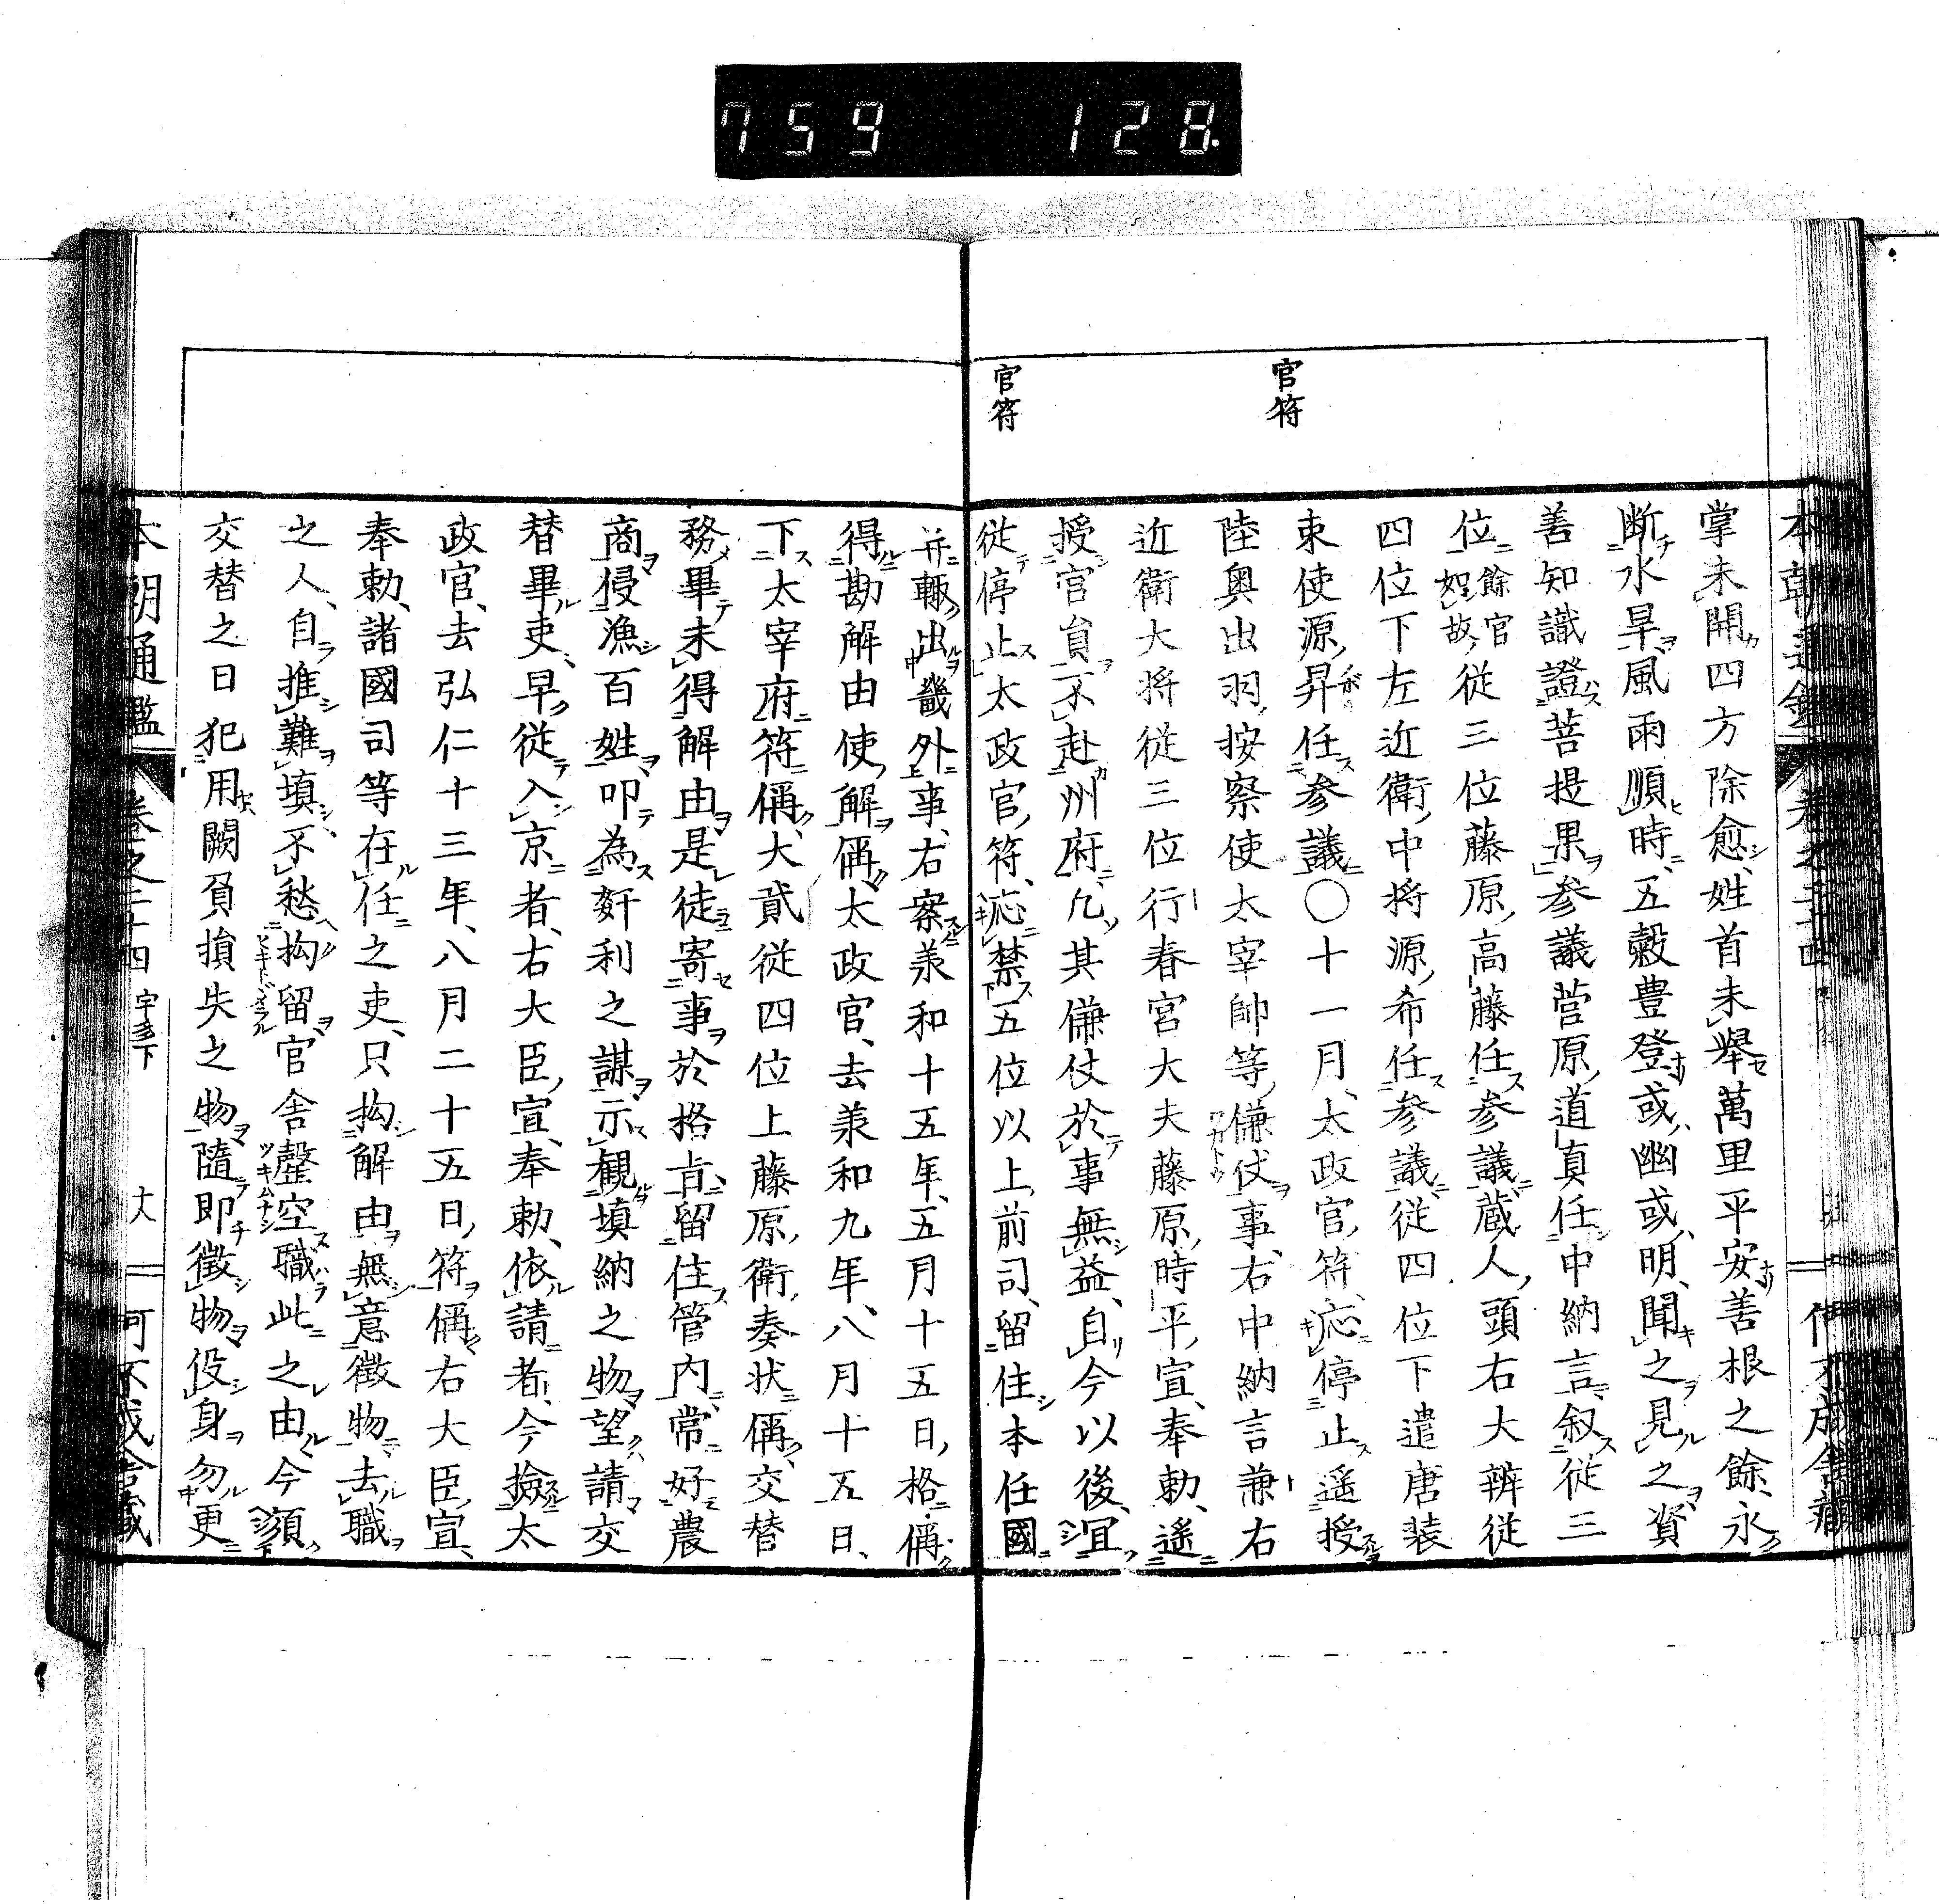 759 128
官符
官符
掌未開四方除愈姓首未擧萬里平安善根之餘永
断水旱風雨順時五穀豊登或幽或明聞之見之資
善知識證菩提果參議菅原道真任中納言叙從三
位餘官如故從三位藤原高藤任參議蔵人頭右大辨從
四位下左近衛中将源希任參議從四位下遣唐装
束使源昇任參議〇十一月太政官符応停止遥授
陸奥出羽按察使太宰帥等傔仗事右中納言兼右
近衛大将從三位行春宮大夫藤原時平宣奉勅遥
授官員不赴州府凡其傔仗於事無益自今以後宜
從停止太政官符応禁五位以上前司留住本任國
并輙出畿外事右案羕和十五年五月十五日格偁
得勘解由使解偁太政官去羕和九年八月十五日
下太宰府符偁大貳從四位上藤原衛奏状偁交替
務畢未得解由是徒寄事於格旨留住管内常好農
商侵漁百姓叩為姧利之謀示観填納之物望請交
替畢吏早從入京者右大臣宣奉勅依請者今撿太
政官去弘仁十三年八月二十五日符偁右大臣宣
奉勅諸國司等在任之吏只拘解由無意徴物去職
之人自推難填不愁拘留官舎罄空職此之由今須
交替之日犯用闕負損失之物隨即徴物役身勿更
本朝通鑑 巻之二十四 宇多下 大 可不成舎蔵